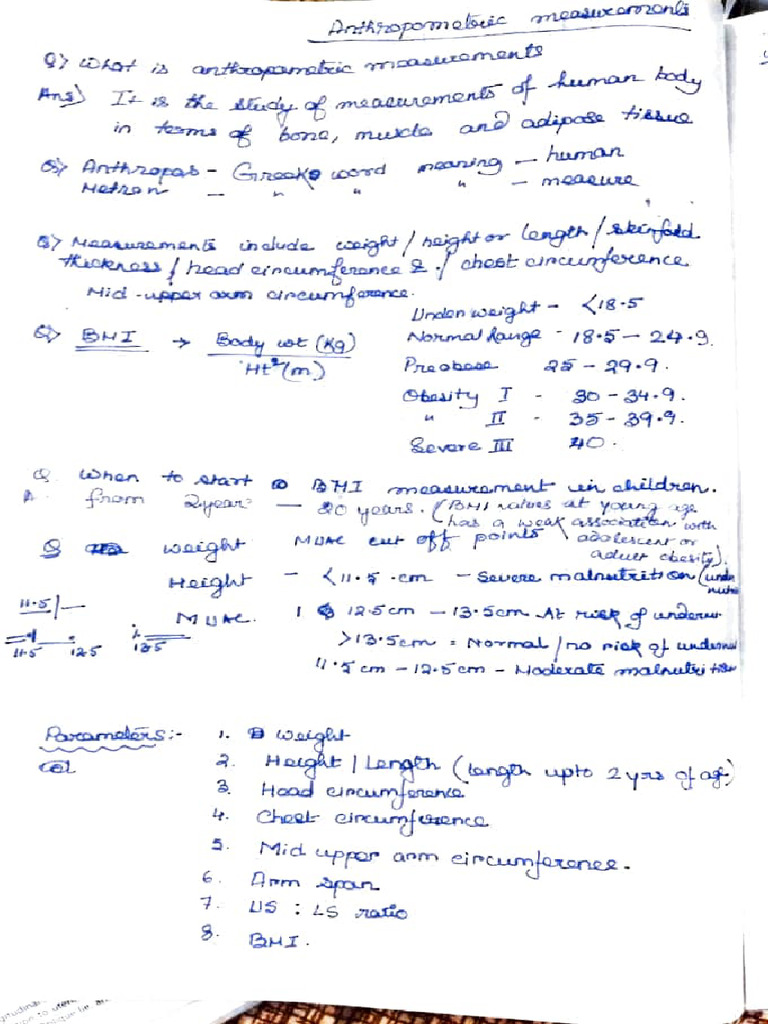 Anthropometric measurements
Q> What is anthropometric measurements
Ans) It is the study of measurements of human body
in terms of bone, muscle and adipose tissue
Q> Anthropos - Greek word meaning - human
Metron - " " " - measure
Q> Measurements include weight/height or length/skinfold
thickness/head circumference & / chest circumference
Mid-upper arm circumference.
Under weight - <18.5
Q> BMI → Body wt (Kg)
Ht²(m)
Normal Range - 18.5 - 24.9.
Preobese 25 - 29.9.
Obesity I - 30 - 34.9.
" II - 35 - 39.9.
Severe III 40.
Q. When to start BMI measurement in children.
A. from 2year - 20 years. (BMI values at young age
has a weak association with
adolescent or
adult obesity).
Q weight MUAC cut off points
Height - <11.5 cm - Severe malnutrition (unde
nutri
11.5/-
MUAC. 1 12.5cm - 13.5cm At risk of undernu
11.5 12.5 13.5
>13.5cm = Normal/no risk of undernu
11.5 cm - 12.5 cm - Moderate malnutrition
Parameters:-
1. weight
2. Height | Length (length upto 2 yrs of age)
3. Head circumference
4. Chest circumference
5. Mid upper arm circumference.
6. Arm span
7. US : LS ratio
8. BMI.